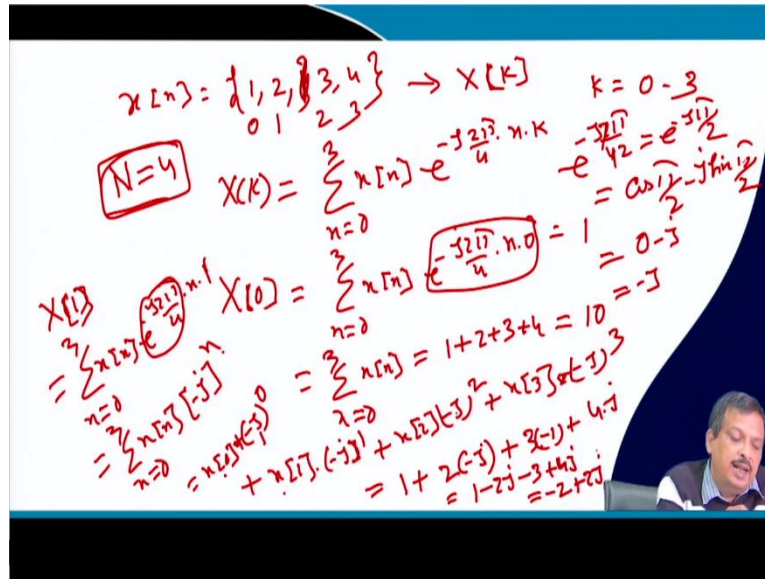 x[n] = {1, 2, 3, 4} → X[K]
0 1 2 3
K = 0 - 3
N=4
X(K) = 3 Σ n=0 x[n] e^-j2π/4 . n.K
e^-j2π/42 = e^-jπ/2
= cos π/2 - j sin π/2
= 0-j
= -j
X[0] = 3 Σ n=0 x[n] e^-j2π/4 . n.0 = 1
= 3 Σ n=0 x[n] = 1+2+3+4 = 10
X[1]
= 3 Σ n=0 x[n] e^-j2π/4 . n.1
= 3 Σ n=0 x[n] [-j]^n
= x[0]*(-j)^0
+ x[1].(-j)^1 + x[2](-j)^2 + x[3]*(-j)^3
= 1 + 2(-j) + 3(-1) + 4.j
= 1-2j-3+4j
= -2+2j